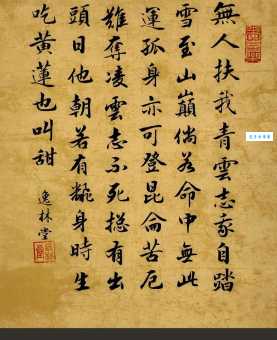 無人扶我青雲志我自踏
雪至山巔倘若命中無此
運孤身亦可登昆侖苦厄
難奪凌雲志不死總有出
頭日他朝若有身時生
吃黃蓮也叫甜
逸林堂